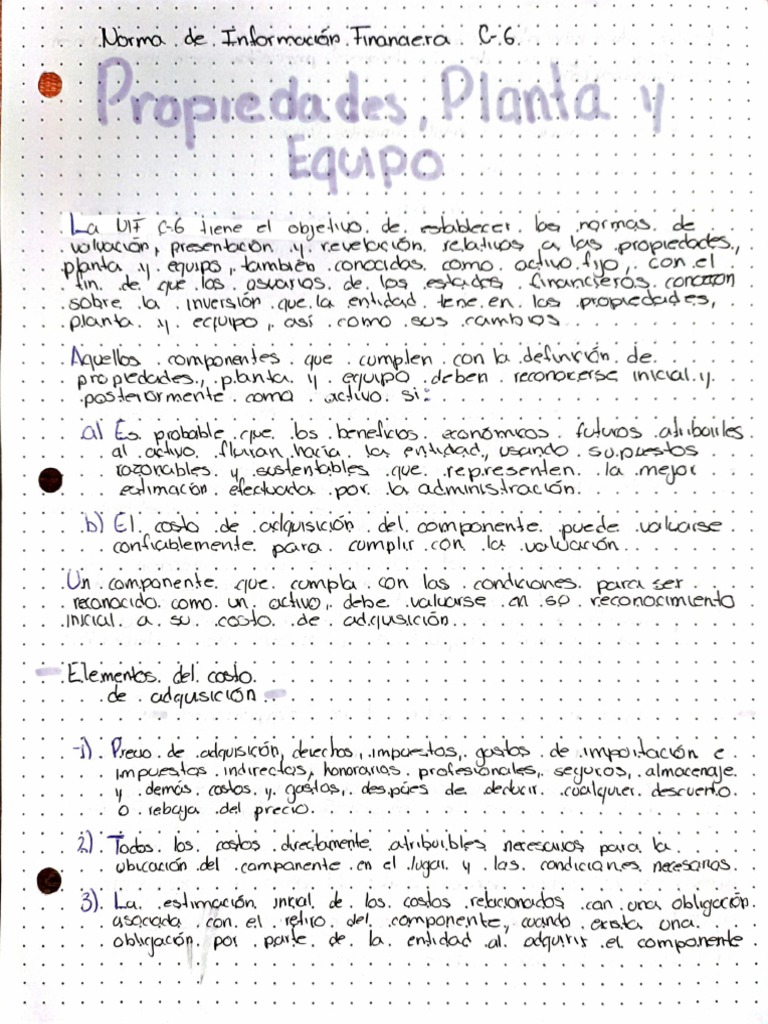 Norma de Información Financiera C-6
Propiedades, Planta y
Equipo
La NIF C-6 tiene el objetivo de establecer las normas de
valuación, presentación y revelación relativos a las propiedades,
planta y equipo, también conocidas como activo fijo, con el
fin de que los usuarios de los estados financieros conozcan
sobre la inversión que la entidad tiene en las propiedades,
planta y equipo, así como sus cambios
Aquellos componentes que cumplen con la definición de
propiedades, planta y equipo deben reconocerse inicial y
posteriormente como activo si:
a) Es probable que los beneficios económicos futuros atribuibles
al activo fluiran hacia la entidad, usando supuestos
razonables y sustentables que representen la mejor
estimación efectuada por la administración.
b) El costo de adquisición del componente puede valuarse
confiablemente para cumplir con la valuación
Un componente que cumpla con las condiciones para ser
reconocido como un activo, debe valuarse en so reconocimiento
inicial a su costo de adqusición.
Elementos del costo
de adqusición
1) Precio de adquisición, derechos, impuestos, gastos de importación e
impuestos indirectos, honorarios profesionales, seguros, almacenaje
y demás costos y gastos, despúes de deducir cualquier descuento
o rebaja del precio.
2) Todos los costos directamente atribuibles necesarios para la
ubicación del componente en el lugar y las condiciones necesarias.
3) La estimación inicial de los costos relacionados con una obligación
asociada con el retiro del componente, cuando exista una
obligación por parte de la entidad al adquirir el componente